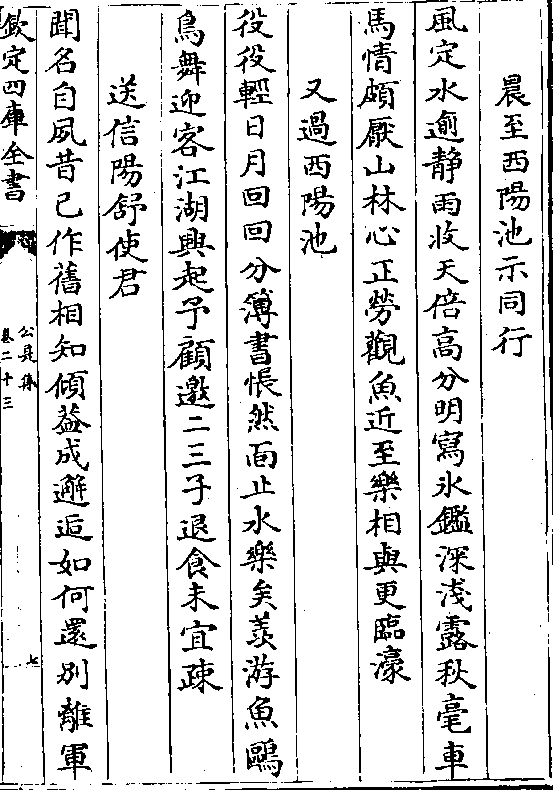 晨至西陽池示同行
風定水逾静雨收天倍高分明寫氷鑑深淺露秋毫車
馬情頗厭山林心正勞觀魚近至樂相與更臨濠
又過西陽池
役役輕日月回回分簿書悵然面止水樂矣羨游魚鷗
鳥舞迎客江湖興起予顧邀二三子退食未宜疎
送信陽舒使君
聞名自夙昔已作舊相知傾葢成邂逅如何還別離軍
欽定四庫全書
公是集
卷二十三
七